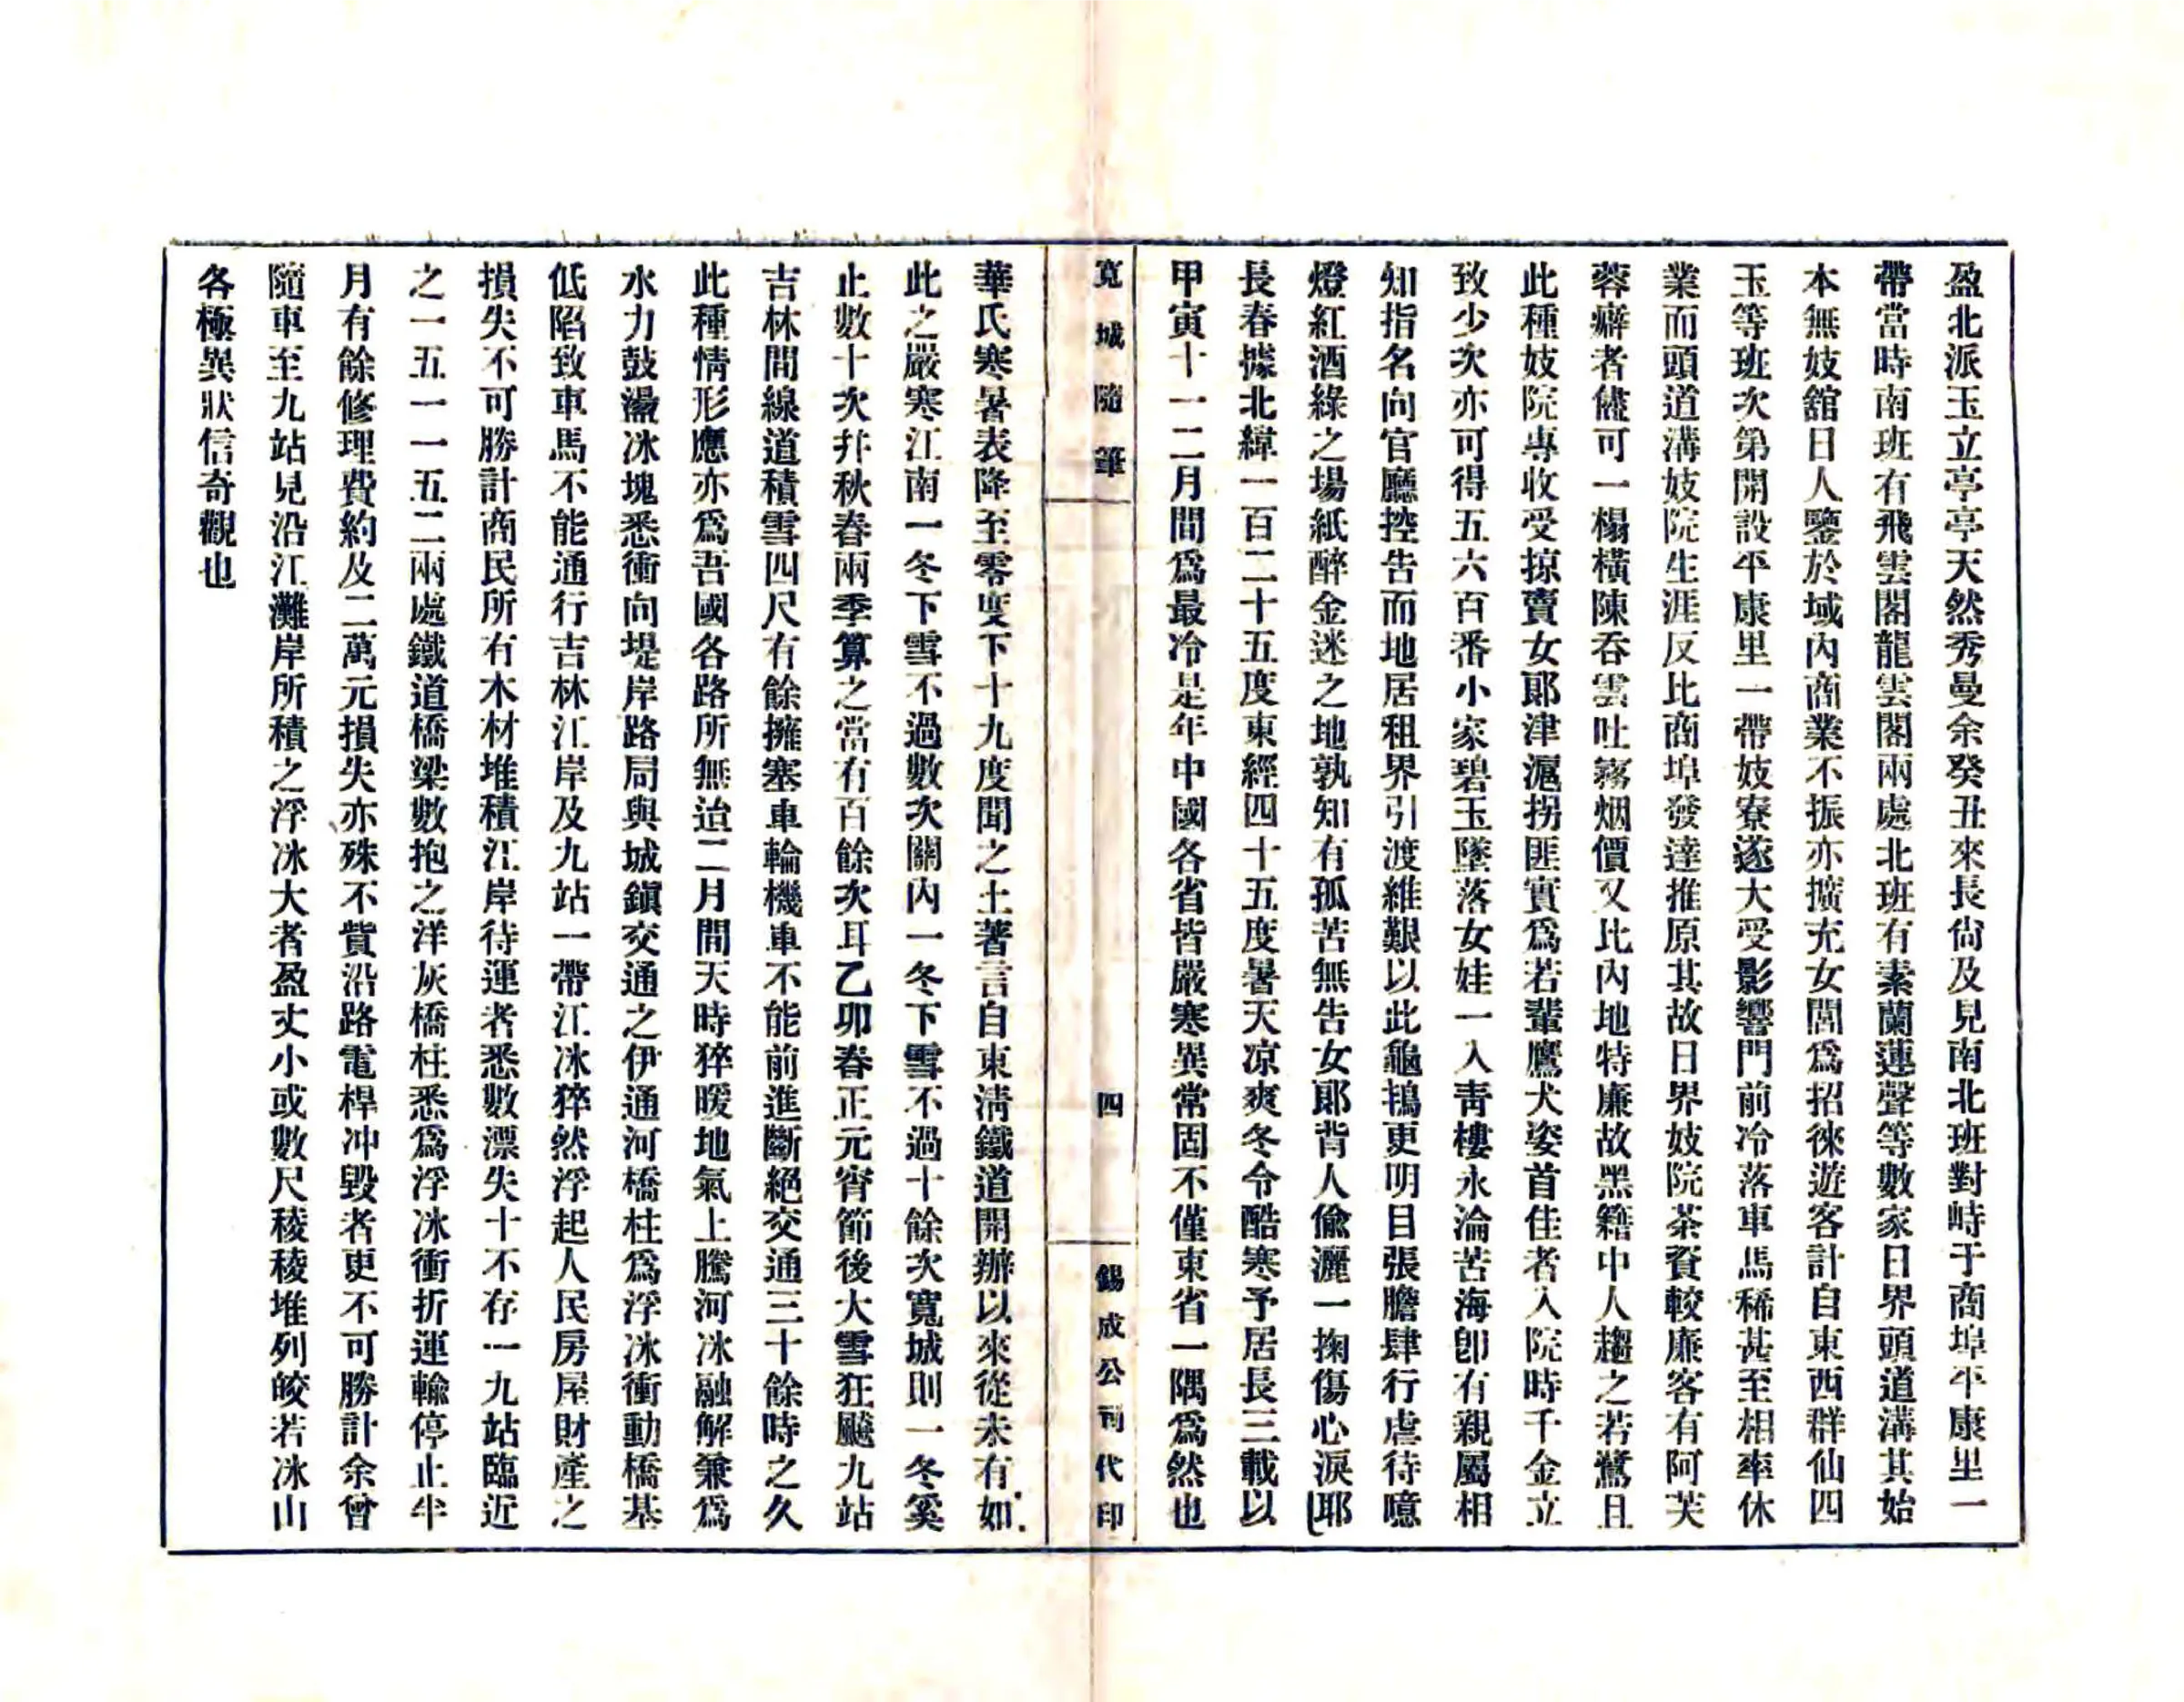 盈北派玉立亭亭天然秀曼余癸丑來長尙及見南北班對峙于商埠平康里一
帶當時南班有飛雲閣龍雲閣兩處北班有素蘭蓮聲等數家日界頭道溝其始
本無妓舘日人鑒於域內商業不振亦擴充女閭爲招徠遊客計自東西群仙四
玉等班次第開設平康里一帶妓寮遂大受影響門前冷落車馬稀甚至相率休
業而頭道溝妓院生涯反比商埠發達推原其故日界妓院茶資較廉客有阿芙
蓉癖者儘可一榻橫陳吞雲吐霧烟價又比內地特廉故黑籍中人趨之若鶩且
此種妓院專收受掠賣女郞津滬拐匪實爲若輩鷹犬姿首佳者入院時千金立
致少次亦可得五六百番小家碧玉墜落女娃一入靑樓永淪苦海卽有親屬相
知指名向官廳控告而地居租界引渡維艱以此龜鴇更明目張膽肆行虐待噫
燈紅酒綠之場紙醉金迷之地孰知有孤苦無告女郞背人偸灑一掬傷心淚耶
長春據北緯一百二十五度東經四十五度暑天凉爽冬令酷寒予居長三載以
甲寅十一二月間爲最冷是年中國各省皆嚴寒異常固不僅東省一隅爲然也
寬城隨筆
四
錫成公司代印
華氏寒暑表降至零度下十九度聞之土著言自東淸鐵道開辦以來從未有如
此之嚴寒江南一冬下雪不過數次關內一冬下雪不過十餘次寬城則一冬奚
止數十次幷秋春兩季算之當有百餘次耳乙卯春正元宵節後大雪狂飈九站
吉林間線道積雪四尺有餘擁塞車輪機車不能前進斷絕交通三十餘時之久
此種情形應亦爲吾國各路所無迨二月間天時猝暖地氣上騰河冰融解兼爲
水力鼓盪冰塊悉衝向堤岸路局與城鎭交通之伊通河橋柱爲浮冰衝動橋基
低陷致車馬不能通行吉林江岸及九站一帶江冰猝然浮起人民房屋財產之
損失不可勝計商民所有木材堆積江岸待運者悉數漂失十不存一九站臨近
之一五一一五二兩處鐵道橋梁數抱之洋灰橋柱悉爲浮冰衝折運輸停止半
月有餘修理費約及二萬元損失亦殊不貲沿路電桿冲毀者更不可勝計余曾
隨車至九站見沿江灘岸所積之浮冰大者盈丈小或數尺稜稜堆列皎若冰山
各極異狀信奇觀也